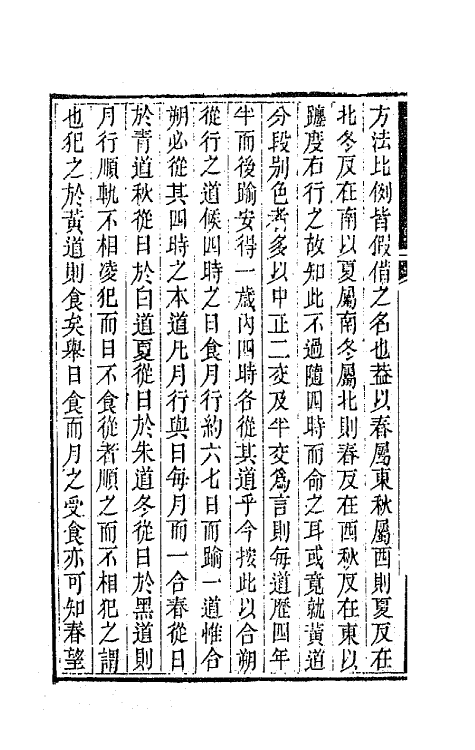 方法比例皆假借之名也葢以春屬東秋屬西則夏反在
北冬反在南以夏屬南冬屬北則春反在西秋反在東以
躔度右行之故知此不過隨四時而命之耳或竟就黃道
分段别色者多以中正二交及半交爲言則每道歷四年
半而後踰安得一歲内四時各從其道乎今按此以合朔
從行之道候四時之日食月行約六七日而踰一道惟合
朔必從其四時之本道凡月行與日每月而一合春從日
於青道秋從日於白道夏從日於朱道冬從日於黑道則
月行順軌不相凌犯而日不食從者順之而不相犯之謂
也犯之於黃道則食矣舉日食而月之受食亦可知春望